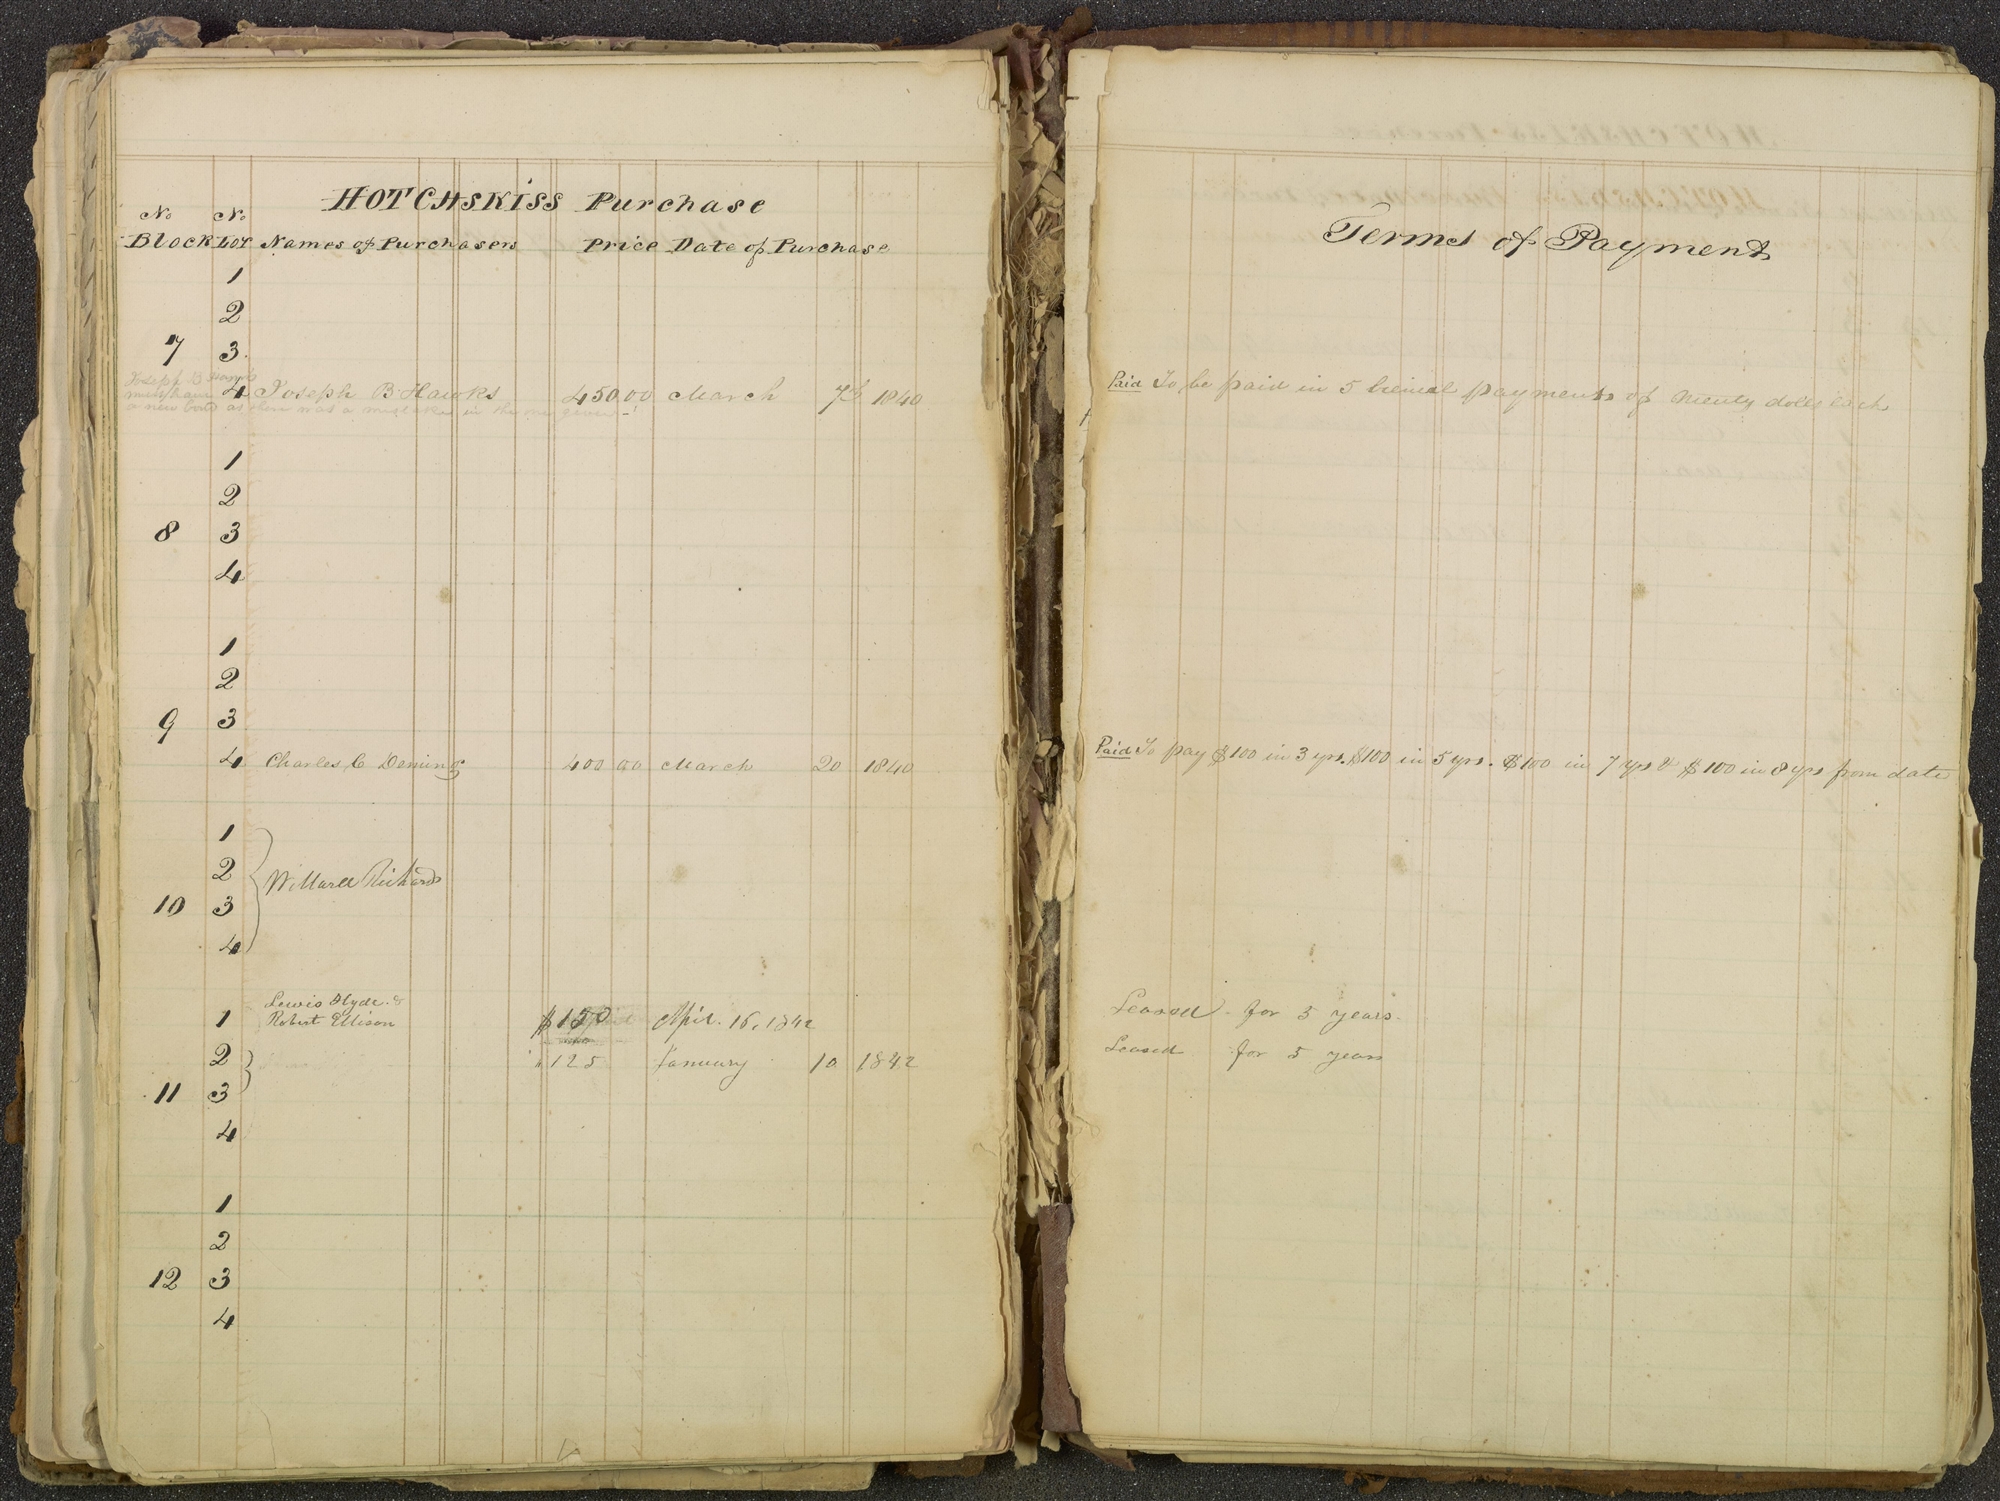 HOTCHSKISS Purchase
No No
Block Lot Names of Purchasers Price Date of Purchase
1
2
7 3
Joseph B Hawks
must have 4 Joseph B Hawks 450 00 March 7th 1840
a new bond as there was a mistake in the one given
1
2
8 3
4
1
2
9 3
4 Charles C Deming 400 00 March 20 1840
1
2
Willard Richards
10 3
4
Lewis Hyde &
1 Robert Ellison $150 Apir. 16, 1842
2 " 125 January 10 1842
11 3
4
1
2
12 3
4
Terms of Payment
Paid To be paid in 5 payments of Ninety dolls each
Paid To pay $100 in 3 yrs. $100 in 5 yrs. $100 in 7 yrs & $100 in 8 yrs from date
Leased for 5 years.
Leased for 5 years